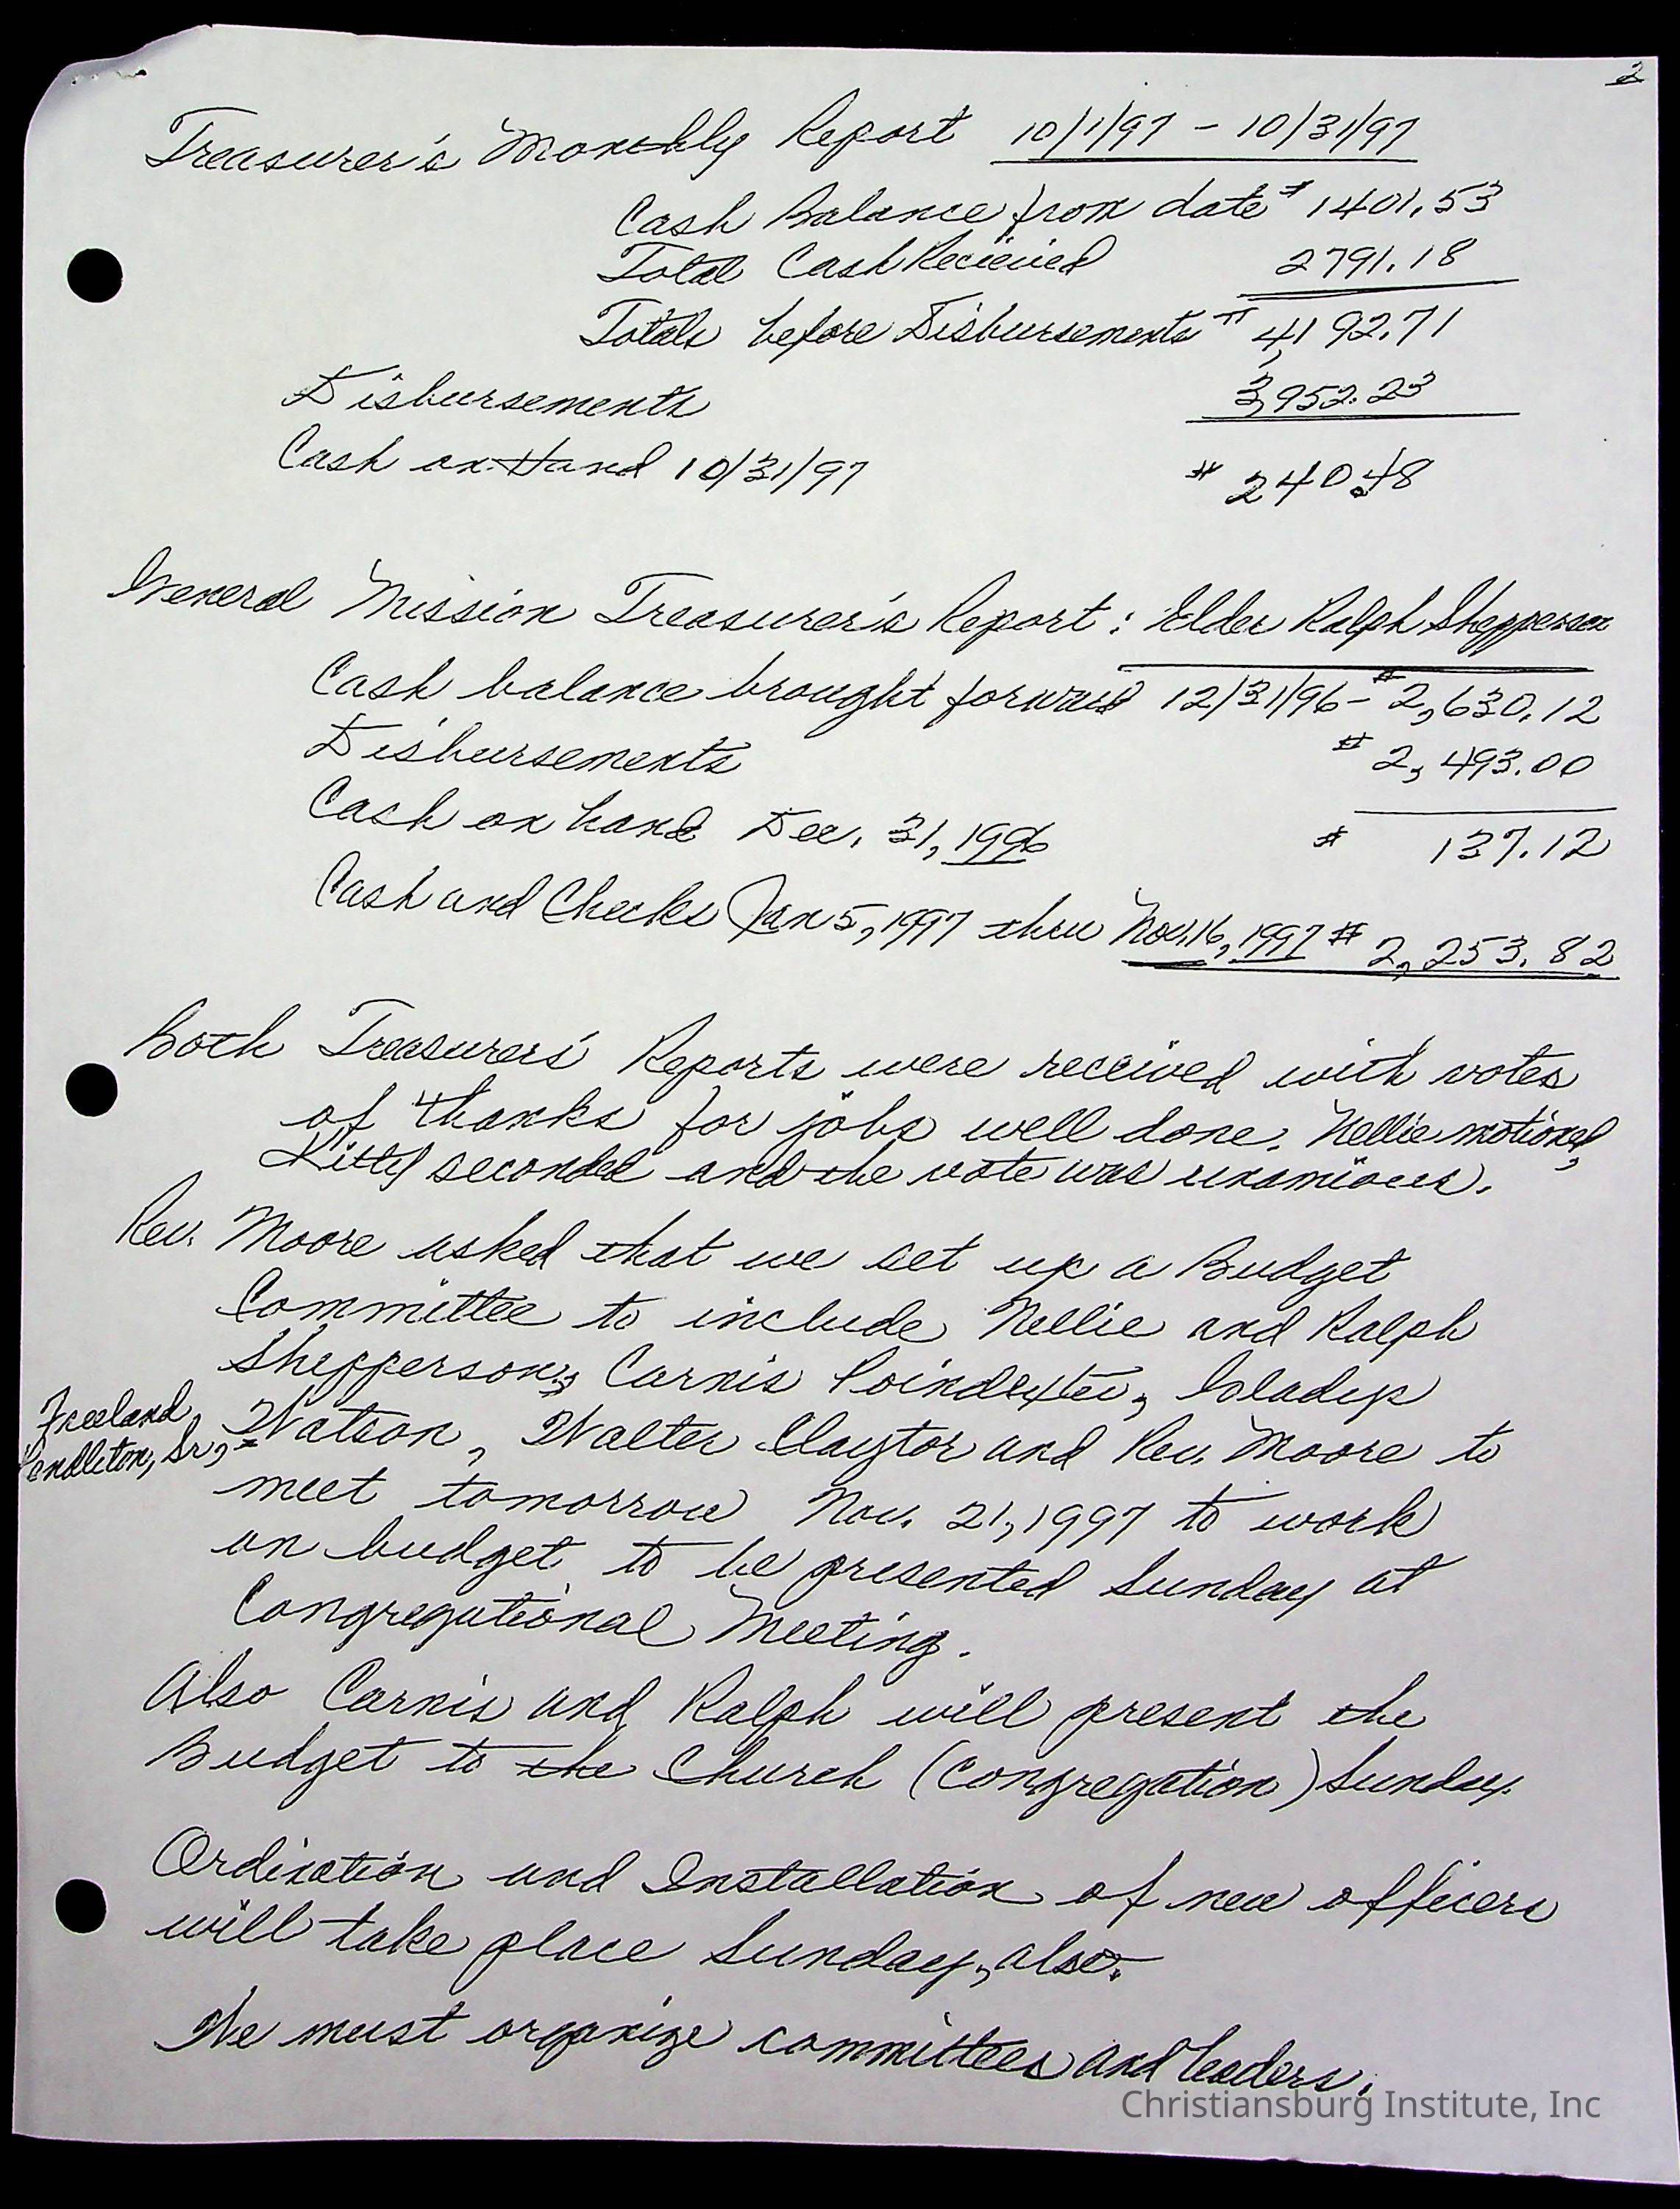 2
Treasurer's Monthly Report 10/1/97 - 10/31/97
Cash Balance from date $ 1401.53
Total Cash Recieived 2791.18
Totals before Disbursements $ 4,192.71
Disbursements 3,952.23
Cash on Hand 10/31/97 $ 240.48
General Mission Treasurer's Report: Elder Ralph Shepperson
Cash balance brought forward 12/31/96 - $ 2,630.12
Disbursements $ 2,493.00
Cash on hand Dec. 31, 1996 $ 137.12
Cash and Checks Jan 5, 1997 thru Nov. 16, 1997 $ 2,253.82
Both Treasurers' Reports were received with votes
of thanks for jobs well done. Nellie motioned,
Kitty seconded and the vote was unamious.
Rev. Moore asked that we set up a Budget
Committee to include Nellie and Ralph
Shepperson, Carnis Poindexter, Gladys
Freeland
Pendleton, Sr., Watson, Walter Claytor and Rev. Moore to
meet tomorrow Nov. 21, 1997 to work
on budget to be presented Sunday at
Congregational Meeting.
Also Carnis and Ralph will present the
Budget to the Church (Congregation) Sunday.
Ordination and Installation of new officers
will take place Sunday, also.
We must organize committees and leaders.
Christiansburg Institute, Inc